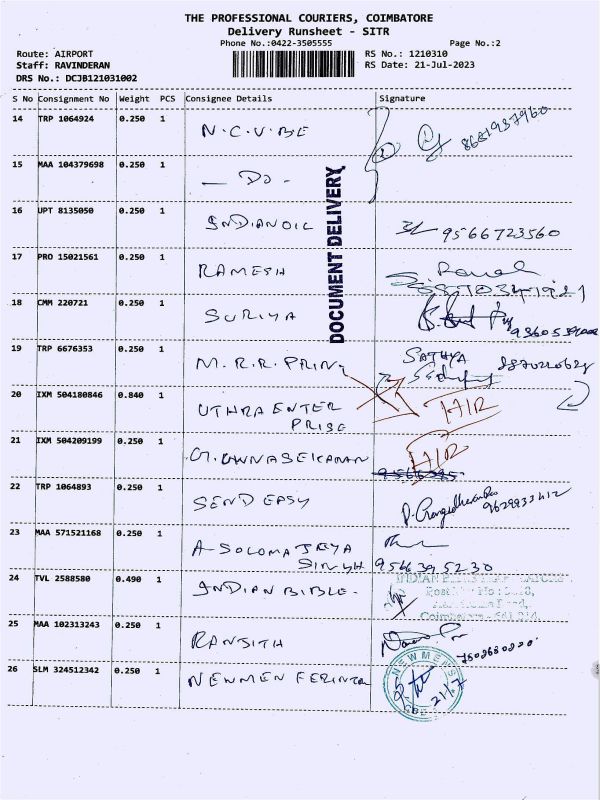 THE PROFESSIONAL COURIERS, COIMBATORE
Delivery Runsheet - SITR
Phone No.:0422-3505555 Page No.:2
Route: AIRPORT RS No.: 1210310
Staff: RAVINDERAN RS Date: 21-Jul-2023
DRS No.: DCJB121031002
S No Consignment No Weight PCS Consignee Details Signature
14 TRP 1064924 0.250 1 N.C.V.BE 8681937960
15 MAA 104379698 0.250 1 - DO -
DOCUMENT DELIVERY
16 UPT 8135050 0.250 1 INDIANOIL 9566723560
17 PRO 15021561 0.250 1 RAMESH
18 CMM 220721 0.250 1 SURIYA
19 TRP 6676353 0.250 1 M.R.R. PRINT SATHYA
20 IXM 504180846 0.840 1 UTHRA ENTER
PRISE
21 IXM 504209199 0.250 1
22 TRP 1064893 0.250 1 SEND EASY
23 MAA 571521168 0.250 1 A-SOLOMA JEYA
SINGH 9566395230
24 TVL 2588580 0.490 1 INDIAN BIBLE-
25 MAA 102313243 0.250 1 RANSITH
26 SLM 324512342 0.250 1 NEWMEN
NEWMEN
21/7